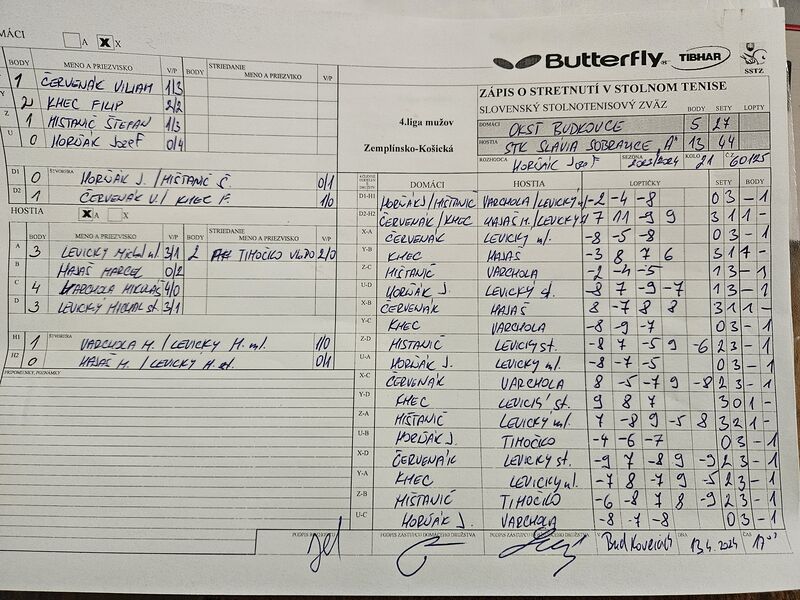 MÁCI A X X
Butterfly TIBHAR
SSTZ
BODY MENO A PRIEZVISKO V/P BODY STRIEDANIE MENO A PRIEZVISKO V/P
1 ČERVENÁK VILIAM 1/3
Y 2 KHEC FILIP 2/2
Z 1 MIŠTANIČ ŠTEFAN 1/3
U 0 HORŇÁK JOZEF 0/4
D1 0 ŠTVORHRA HORŇÁK J. / MIŠTANIČ Š. 0/1
D2 1 ČERVENÁK V. / KHEC F. 1/0
ZÁPIS O STRETNUTÍ V STOLNOM TENISE
SLOVENSKÝ STOLNOTENISOVÝ ZVÄZ BODY SETY LOPTY
4.liga mužov
Zemplínsko-Košická
DOMÁCI OKST BUDKOVCE 5 27
HOSTIA STK SLÁVIA SOBRANCE "A" 13 44
ROZHODCA HORŇÁK JOZEF SEZÓNA 2023/2024 KOLO 21 Č.
HOSTIA X A X
BODY MENO A PRIEZVISKO V/P BODY STRIEDANIE MENO A PRIEZVISKO V/P
A 3 LEVICKÝ Michal ml 3/1 2 TIMOČKO VLADO 2/0
B HAJAŠ MARCEL 0/2
C 4 VARCHOLA MIKULÁŠ 4/0
D 3 LEVICKÝ MICHAL st. 3/1
H1 1 ŠTVORHRA VARCHOLA M. / LEVICKÝ M. ml. 1/0
H2 0 HAJAŠ M. / LEVICKÝ M. st. 0/1
PRIPOMIENKY, POZNÁMKY
DOMÁCI HOSTIA LOPTIČKY SETY BODY
D1-H1 HORŇÁK J/MIŠTANIČ VARCHOLA/LEVICKÝ ml -2 -4 -8 0 3 - 1
D2-H2 ČERVENÁK/KHEC HAJAŠ M./LEVICKÝ st 7 11 -9 9 3 1 1 -
X-A ČERVENÁK LEVICKÝ ml. -8 -5 -8 0 3 - 1
Y-B KHEC HAJAŠ -3 8 7 6 3 1 1 -
Z-C MIŠTANIČ VARCHOLA -2 -4 -5 0 3 - 1
U-D HORŇÁK J. LEVICKÝ st. -8 7 -9 -7 1 3 - 1
X-B ČERVENÁK HAJAŠ 8 -7 8 8 3 1 1 -
Y-C KHEC VARCHOLA -8 -9 -7 0 3 - 1
Z-D MIŠTANIČ LEVICKÝ st. -8 7 -5 9 -6 2 3 - 1
U-A HORŇÁK J. LEVICKÝ ml. -8 -7 -5 0 3 - 1
X-C ČERVENÁK VARCHOLA 8 -5 -7 9 -8 2 3 - 1
Y-D KHEC LEVICKÝ st. 9 8 7 3 0 1 -
Z-A MIŠTANIČ LEVICKÝ ml. 7 -8 9 -5 8 3 2 1 -
U-B HORŇÁK J. TIMOČKO -4 -6 -7 0 3 - 1
X-D ČERVENÁK LEVICKÝ st. -9 7 -8 9 -9 2 3 - 1
Y-A KHEC LEVICKÝ ml. -7 8 -7 9 -5 2 3 - 1
Z-B MIŠTANIČ TIMOČKO -6 -8 7 8 -9 2 3 - 1
U-C HORŇÁK J. VARCHOLA -8 -7 -8 0 3 - 1
PODPIS ROZHODCU PODPIS ZÁSTUPCU DOMÁCEHO DRUŽSTVA PODPIS ZÁSTUPCU HOSŤUJÚCEHO DRUŽSTVA V Budkovciach DŇA 13.4.2024 ČAS 17⁰⁰